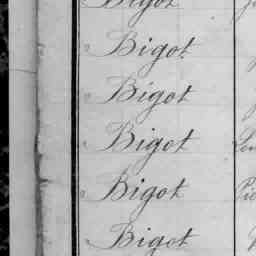 Bigot
Bigot
Bigot
Bigot
Bigot
Bigot